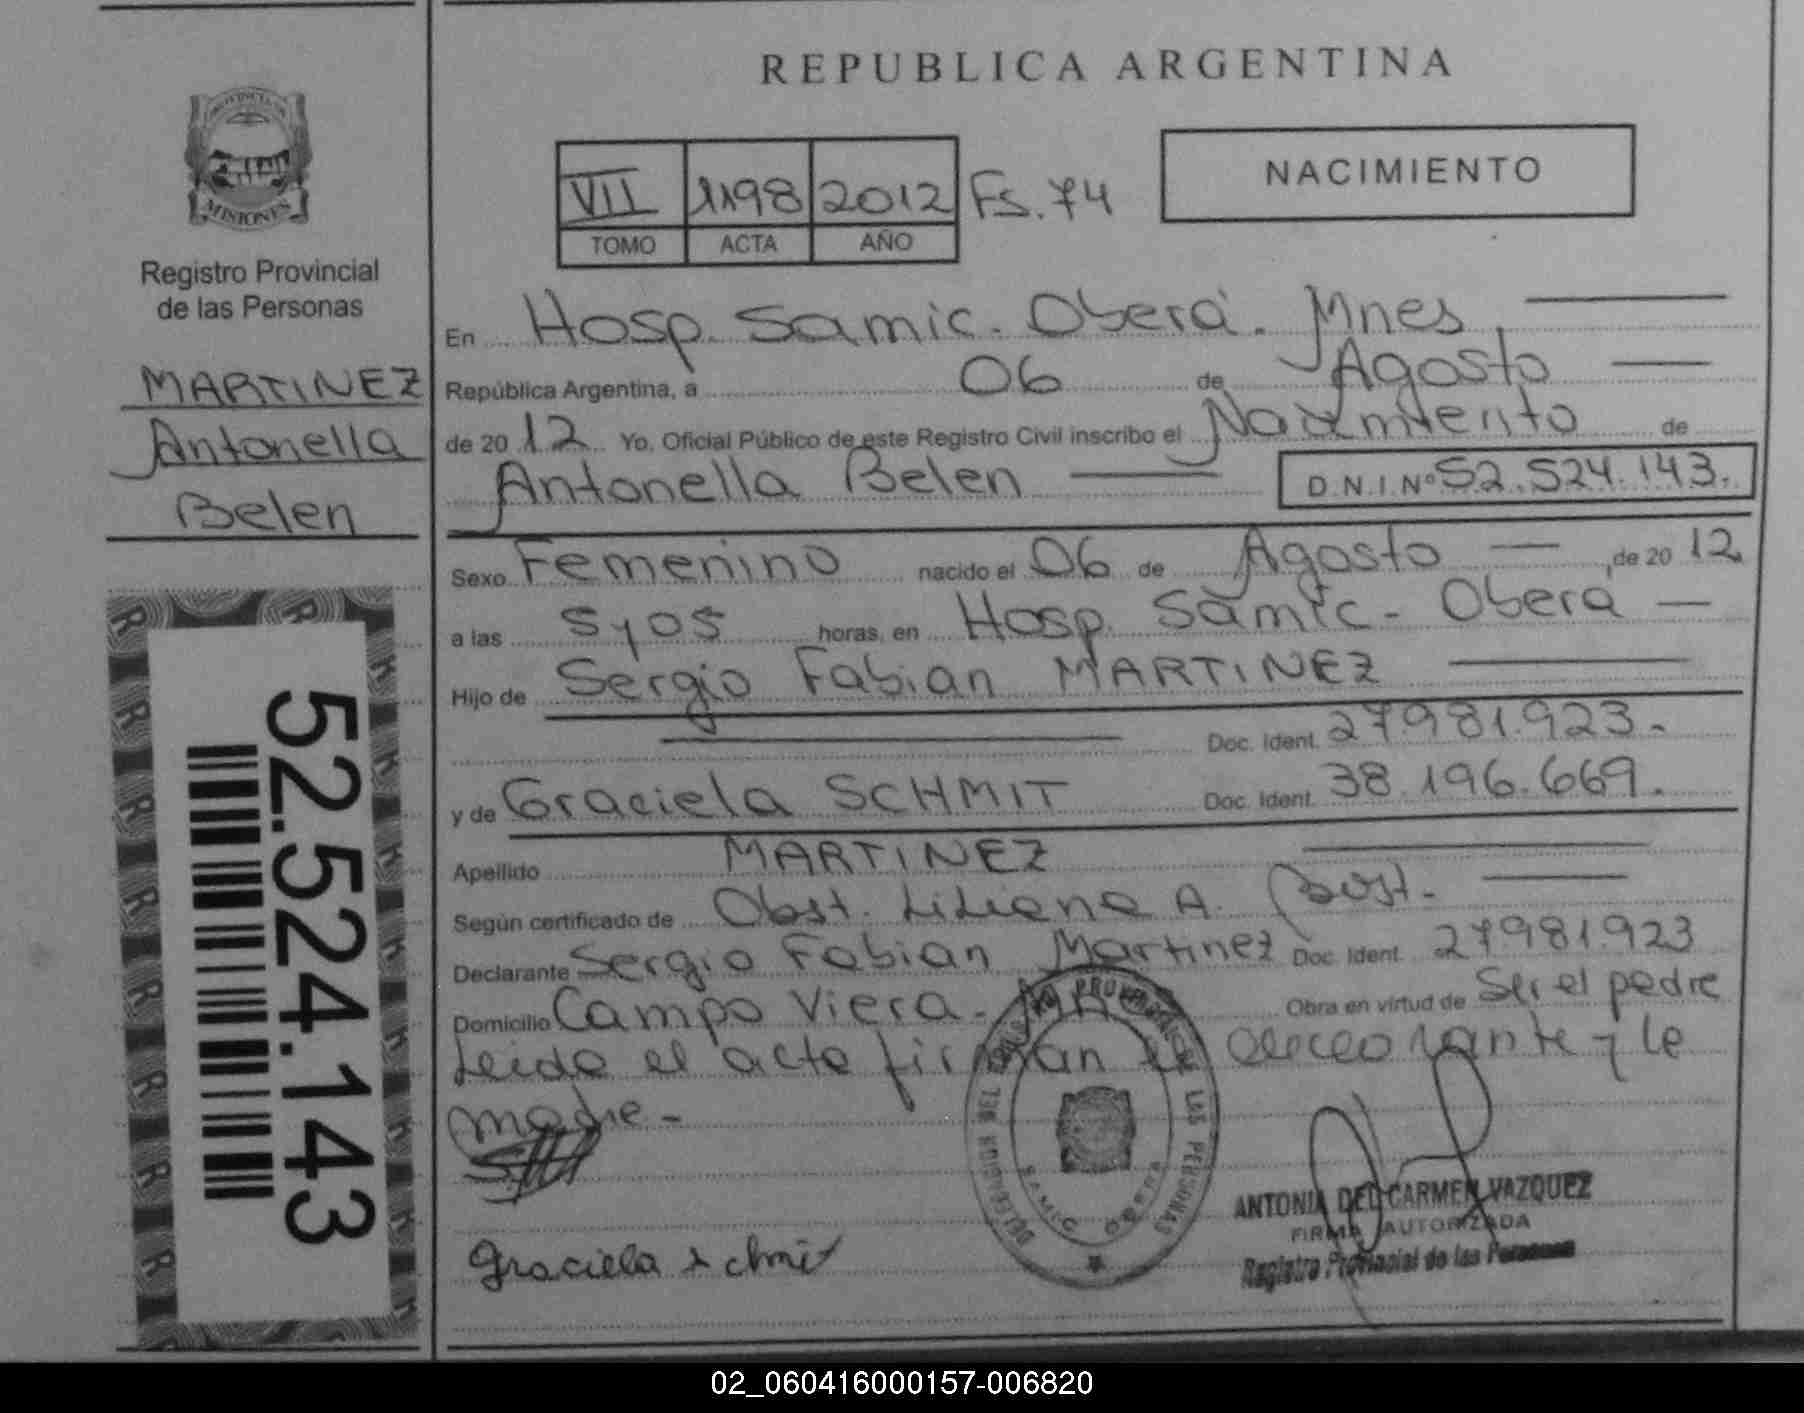 REPUBLICA ARGENTINA
PROVINCIA DE
MISIONES
Registro Provincial
de las Personas
MARTINEZ
Antonella
Belen
52.524.143
VII 1198 2012 Fs. 74
TOMO ACTA AÑO
NACIMIENTO
En Hosp. Samic. Oberá. Mnes,
República Argentina, a 06 de Agosto
de 2012 Yo, Oficial Público de este Registro Civil inscribo el Nacimiento de
Antonella Belen D.N.I.Nº 52.524.143.
Sexo Femenino nacido el 06 de Agosto , de 2012
a las 5 y 05 horas, en Hosp. Samic - Oberá
Hijo de Sergio Fabian MARTINEZ
Doc. Ident. 27.981.923.-
y de Graciela SCHMIT Doc. Ident. 38.196.669.
Apellido MARTINEZ
Según certificado de Obst. Liliana A.
Declarante Sergio Fabian Martinez Doc. Ident. 27981.923
Domicilio Campo Viera - Obra en virtud de Ser el padre
Leida el acta firman el declarante y la
madre.-
Graciela schmit
PROVINCIAL DE LAS PERSONAS
DELEGACION
SAMIC OBERA
ANTONIA DEL CARMEN VAZQUEZ
FIRMA AUTORIZADA
Registro Provincial de las Personas
02_060416000157-006820